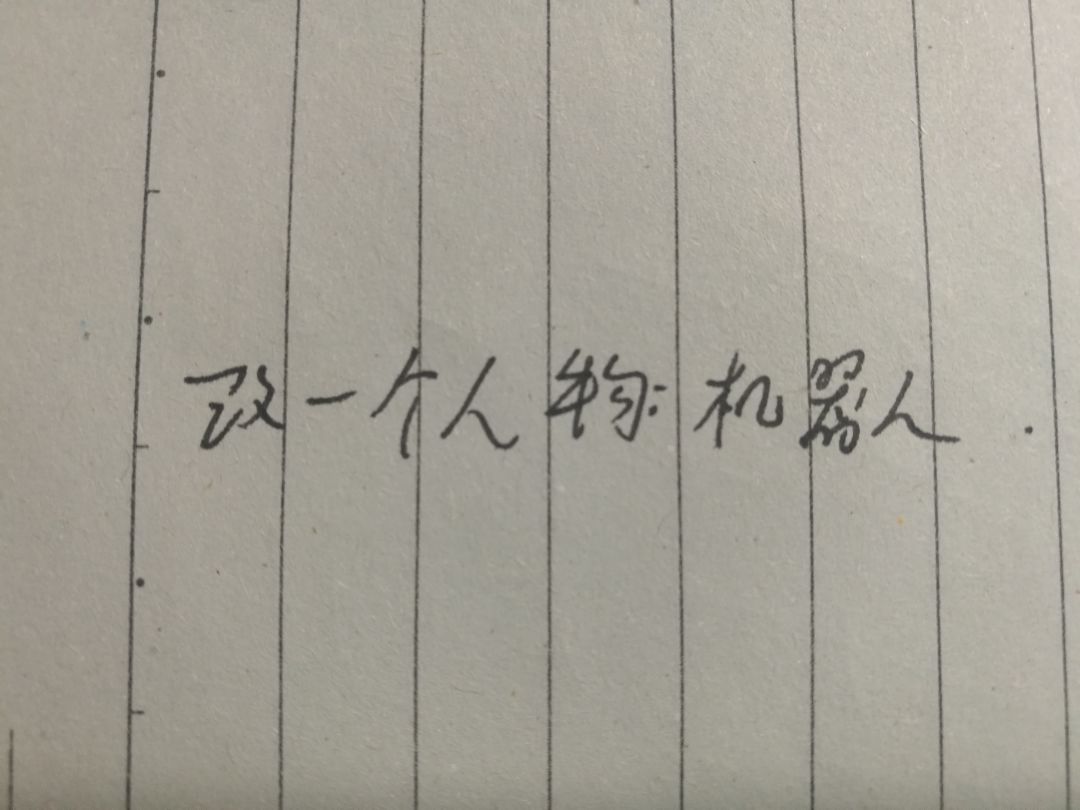 改一个人物:机器人.